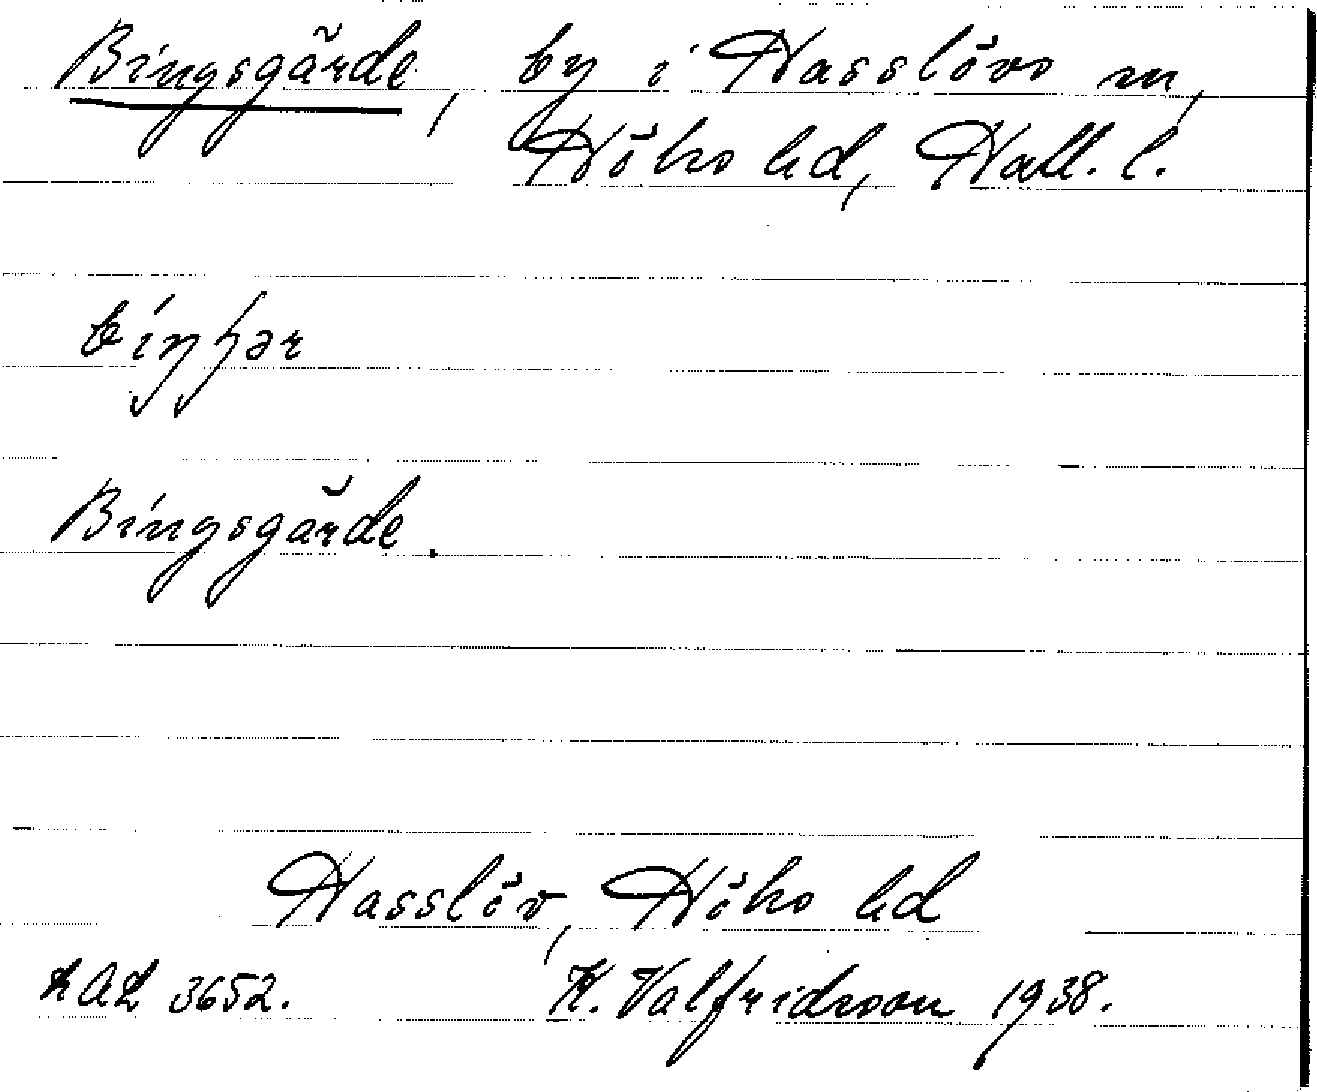 Bingsgärde, by i Hasslövs sn,
Höks hd, Hall. l.
Bingsgärde.
Hasslöv, Höks hd
LAL 3652. K. Valfridsson 1938.